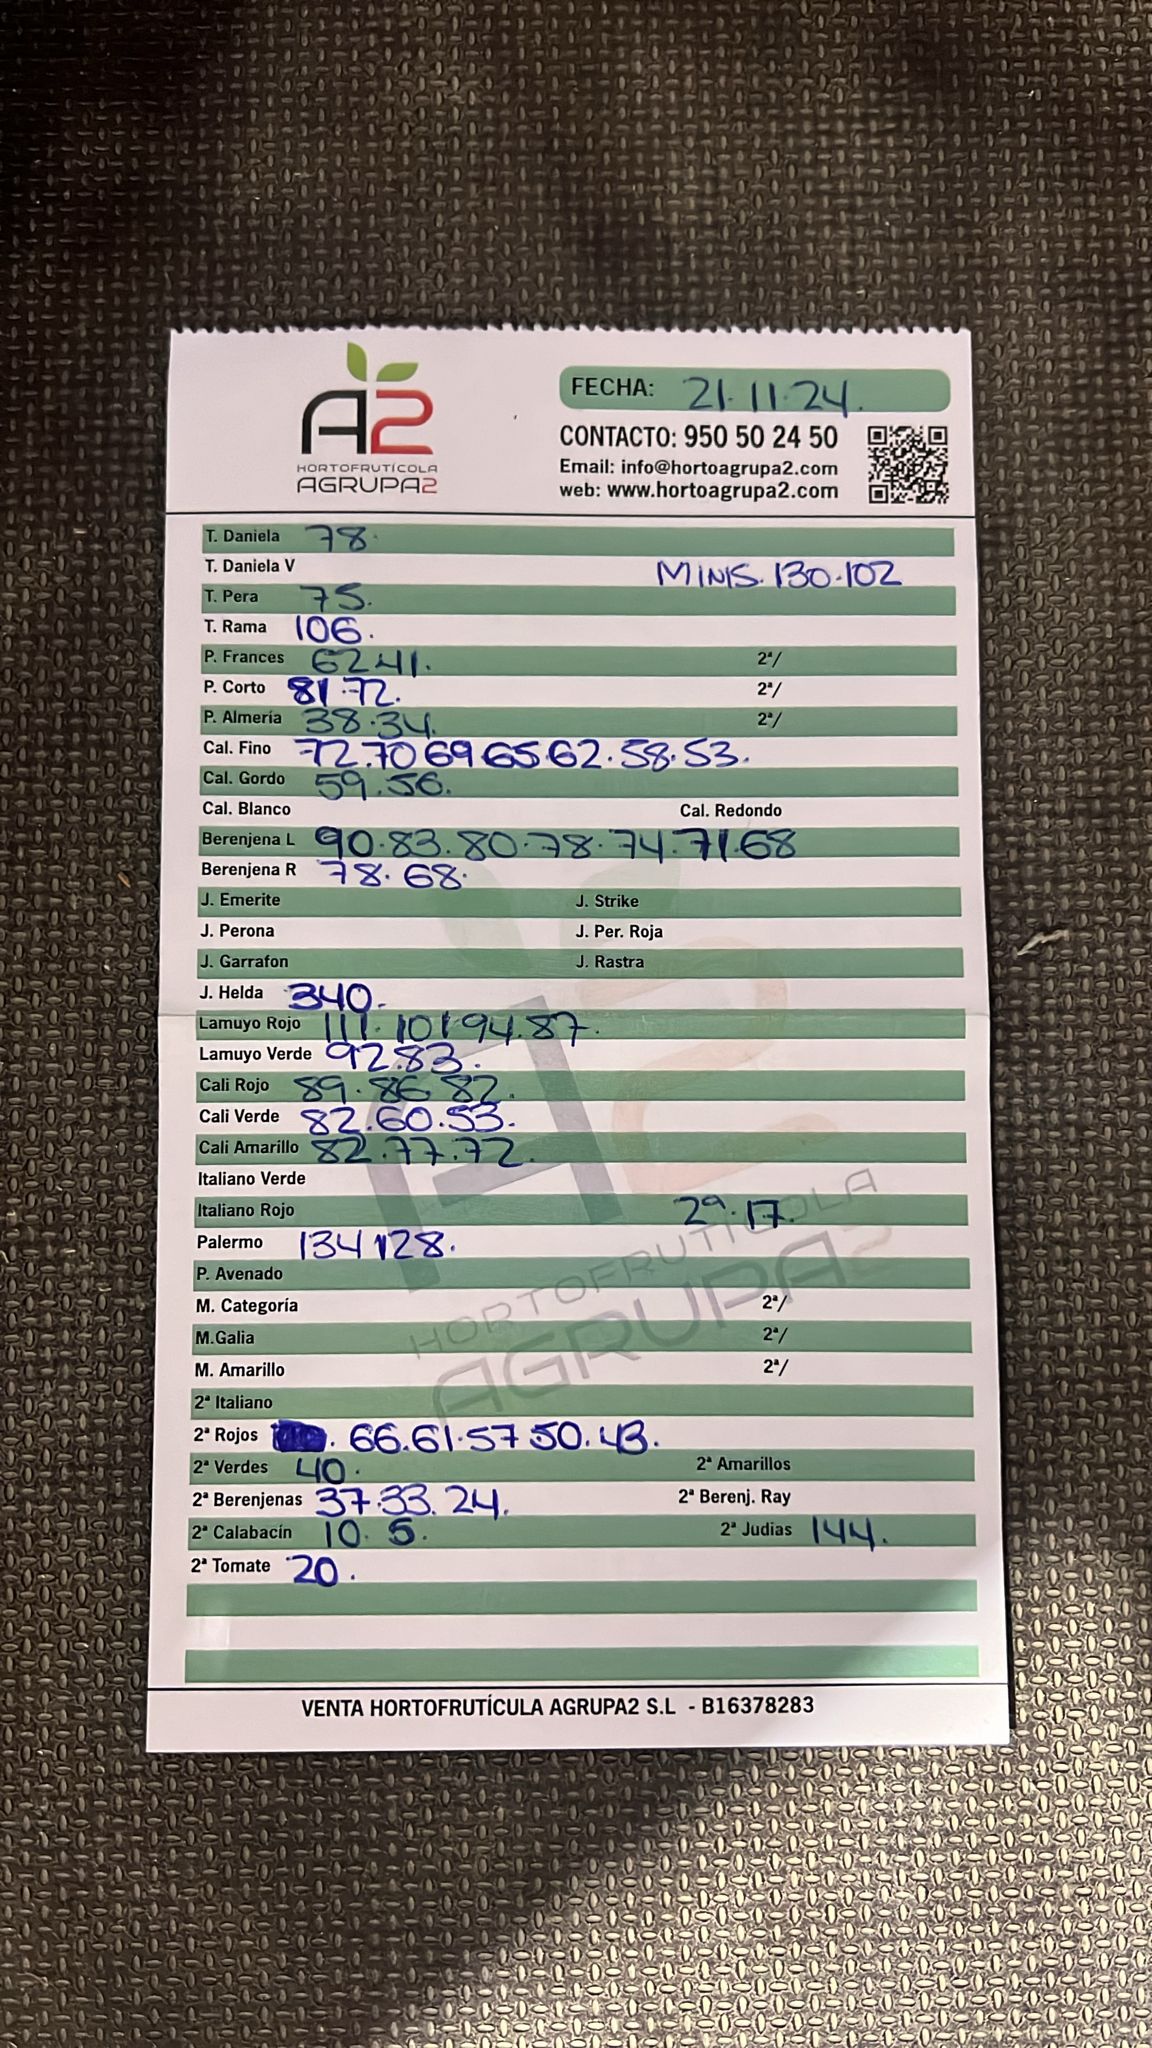 A2
HORTOFRUTÍCOLA
AGRUPA2
FECHA: 21.11.24.
CONTACTO: 950 50 24 50
Email: info@hortoagrupa2.com
web: www.hortoagrupa2.com
T. Daniela 78.
T. Daniela V MINIS. 130.102
T. Pera 75.
T. Rama 106.
P. Frances 62.41. 2ª/
P. Corto 81.72. 2ª/
P. Almería 38.34. 2ª/
Cal. Fino 72.70 69.65.62.58.53.
Cal. Gordo 59.56.
Cal. Blanco Cal. Redondo
Berenjena L 90.83.80.78.74.71.68
Berenjena R 78.68.
J. Emerite J. Strike
J. Perona J. Per. Roja
J. Garrafon J. Rastra
J. Helda 340.
Lamuyo Rojo 111.101 94.87.
Lamuyo Verde 92.83.
Cali Rojo 89.86 82.
Cali Verde 82.60.53.
Cali Amarillo 82.77.72.
Italiano Verde
Italiano Rojo 2ª.17.
Palermo 134 128.
P. Avenado
M. Categoría 2ª/
M.Galia 2ª/
M. Amarillo 2ª/
2ª Italiano
2ª Rojos . 66.61.57 50.43.
2ª Verdes 40. 2ª Amarillos
2ª Berenjenas 37.33.24. 2ª Berenj. Ray
2ª Calabacín 10.5. 2ª Judias 144.
2ª Tomate 20.
HORTOFRUTÍCOLA
AGRUPA2
VENTA HORTOFRUTÍCULA AGRUPA2 S.L - B16378283